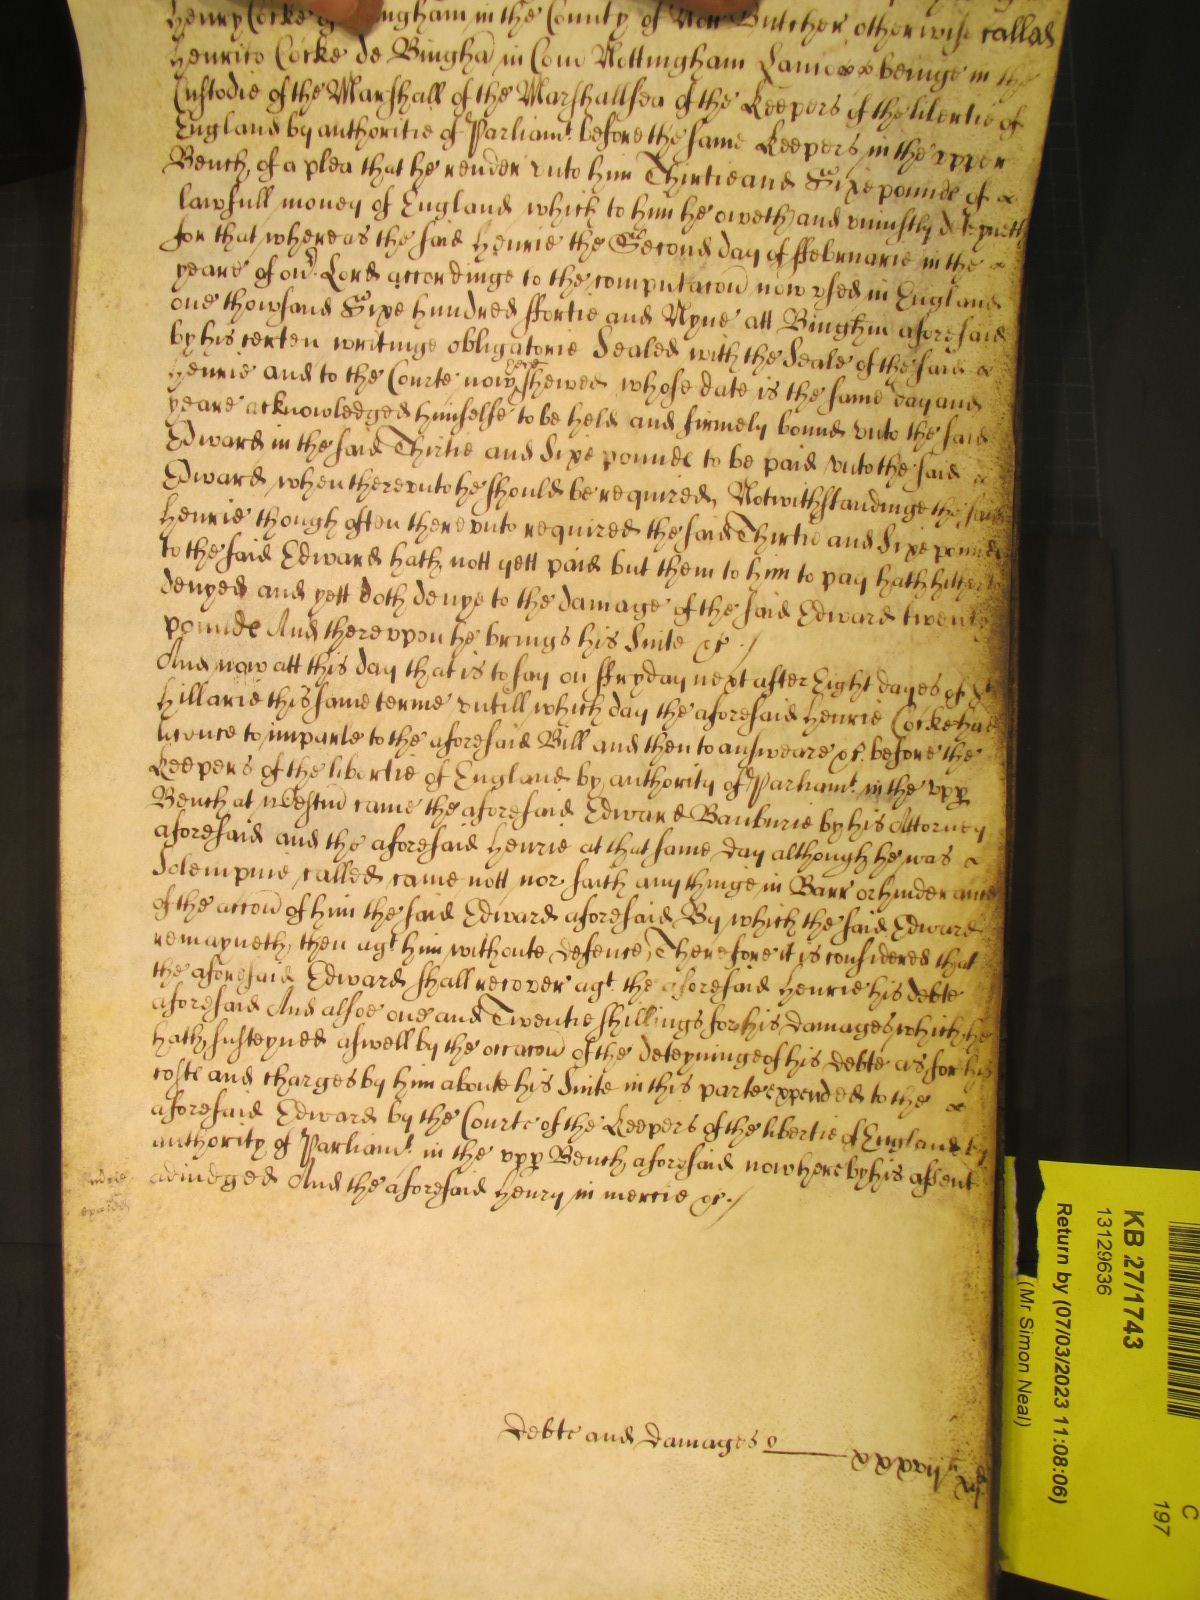 Henry Cocke of Bingham in the County of Nott Butcher otherwise called
Henrico Cocke de Bingha in Com Nottingham Lanio beinge in the
Custodie of the Marshall of the Marshallsea of the Keepers of the libertie of
England by authoritie of Parliamt. before the same Keepers in the upper
Bench, of a plea that he render unto him Thirtie and Sixe pounde of
lawfull money of England which to him he oweth and uniustly deteyneth
for that whereas the said Henrie the Second day of ffebruarie in the
yeare of our Lord accordinge to the computacou now used in England
one thowsand Sixe hundred ffortie and Nyne att Bingham aforesaid
by his certen writinge obligatorie Sealed with the Seale of the said
Henrie and to the Courte now here shewed whose date is the same day and
yeare acknowledged himselfe to be held and firmely bound unto the said
Edward in the said Thirtie and Sixe pounde to be paid unto the said
Edward when thereunto he should be required, Notwithstandinge the said
Henrie though often thereunto required the said Thirtie and Sixe pounde
to the said Edward hath nott yett paid but them to him to pay hath hitherto
denyed and yett doth denye to the damage of the said Edward twenty
pounde And thereupon he brings his Suite &c. /
And now att this day that is to say on ffryday next after Eight dayes of St
Hillarie this same terme untill which day the aforesaid Henrie Cocke had
licence to imparle to the aforesaid Bill and then to answeare &c. before the
Keepers of the libertie of England by authority of Parliamt. in the upp
Bench at Westm came the aforesaid Edward Banburie by his Attorney
aforesaid and the aforesaid Henrie at that same day although he was
Solempnie called came nott nor saith any thinge in Barr or hinderance
of the accou of him the said Edward aforesaid By which the said Edward
remayneth then agt him withoute defence, Therefore it is considered that
the aforesaid Edward shall recover agt. the aforesaid Henrie his debte
aforesaid And alsoe one and Twentie shillings for his damages which he
hath susteyned aswell by the occacou of the deteyninge of his debte as for his
coste and charges by him aboute his Suite in this parte expended to the
aforesaid Edward by the Courte of the Keepers of the libertie of England by
authority of Parliamt. in the upp Bench aforesaid now here by his assent
adiudged And the aforesaid Henry in mercie &c. /
Debte and damages
xxxvij li xij d
KB 27/1743
13129636
Return by (07/03/2023 11:08:06)
(Mr Simon Neal)
C
197